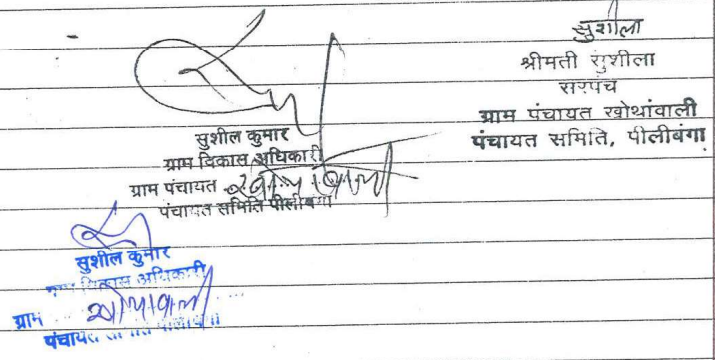 सुशीला
श्रीमती सुशीला
सरपंच
ग्राम पंचायत खोथांवाली
पंचायत समिति, पीलीबंगा
सुशील कुमार
ग्राम विकास अधिकारी
ग्राम पंचायत खोथांवाली
पंचायत समिति पीलीबंगा
सुशील कुमार
ग्राम विकास अधिकारी
ग्राम खोथांवाली
पंचायत समिति पीलीबंगा